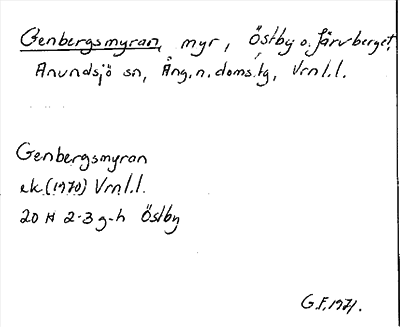 Genbergsmyran, myr, Östby o. Järvberget,
Anundsjö sn, Ång. n. doms.tg, Vrnl.l.
Genbergsmyran
ek. (1970) Vrnl.l.
20 H 2-3 g-h Östby
G.F. 1971.